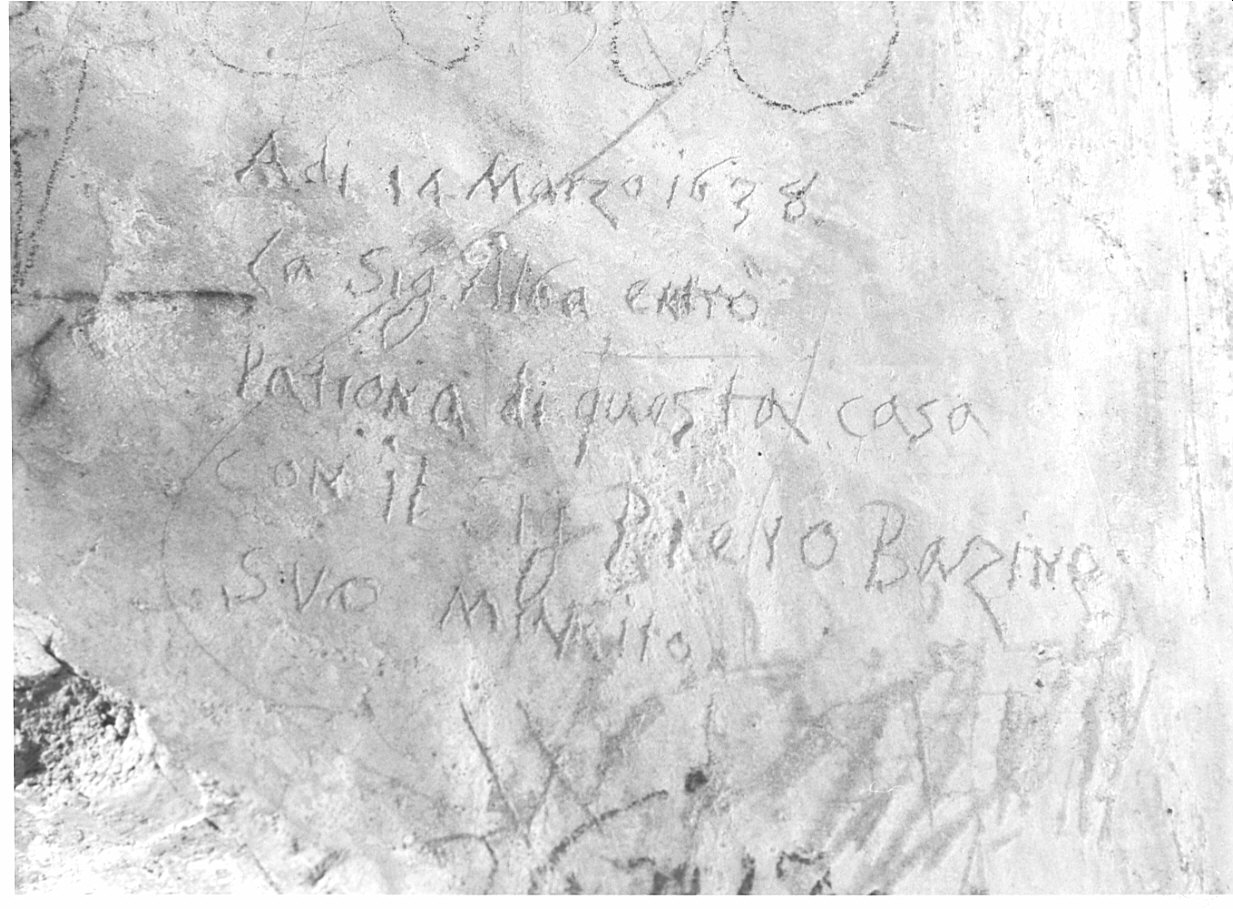 Adi 11 Marzo 1638
La Sig. Alba entrò
Patrona di questa casa
con il Piero Bazino
suo Marito